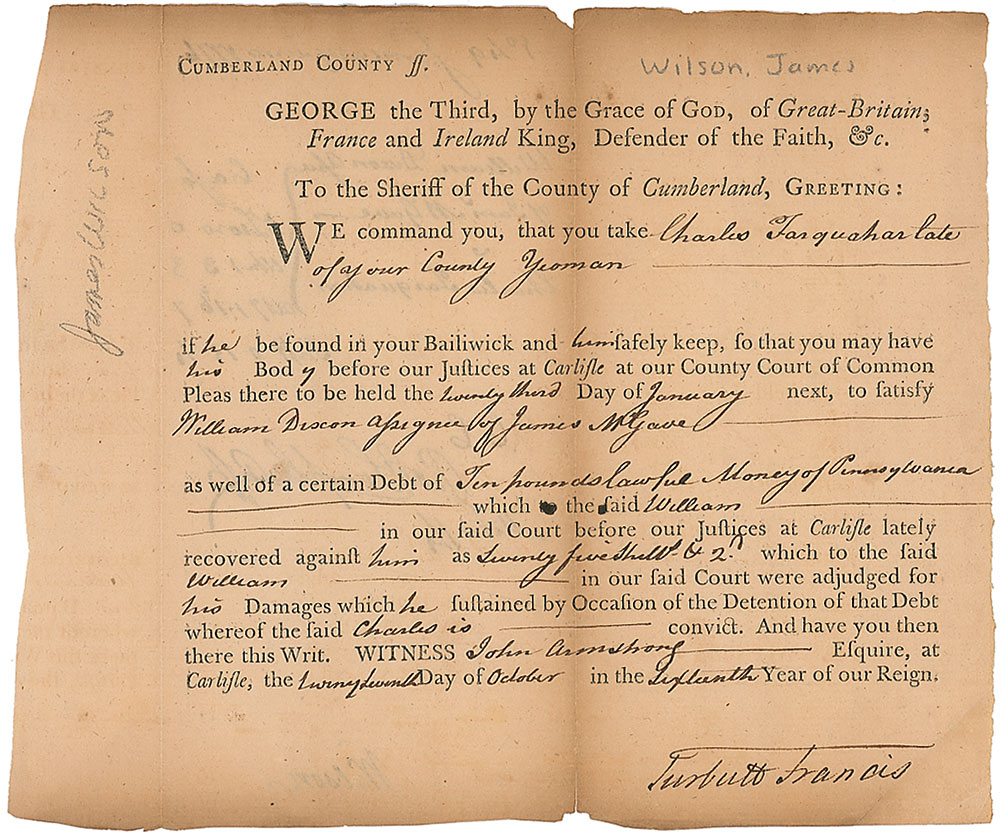 CUMBERLAND COUNTY ſſ.
Wilson, James
James Wilson
GEORGE the Third, by the Grace of GOD, of Great-Britain,
France and Ireland King, Defender of the Faith, &c.
To the Sheriff of the County of Cumberland, GREETING:
WE command you, that you take Charles Farquahar late
of your County Yeoman
if he be found in your Bailiwick and him ſafely keep, ſo that you may have
his Body before our Juſtices at Carliſle at our County Court of Common
Pleas there to be held the twenty third Day of January next, to ſatisfy
William Dixon aſsignee of James McGave
as well of a certain Debt of Ten pounds lawful Money of Pennsylvania
which to the ſaid William
in our ſaid Court before our Juſtices at Carliſle lately
recovered againſt him as twenty five Shills. & 2.d which to the ſaid
William in our ſaid Court were adjudged for
his Damages which he ſuſtained by Occaſion of the Detention of that Debt
whereof the ſaid Charles is convict. And have you then
there this Writ. WITNESS John Armstrong Eſquire, at
Carliſle, the Day of October in the Sixteenth Year of our Reign.
Turbutt Francis
Wilson